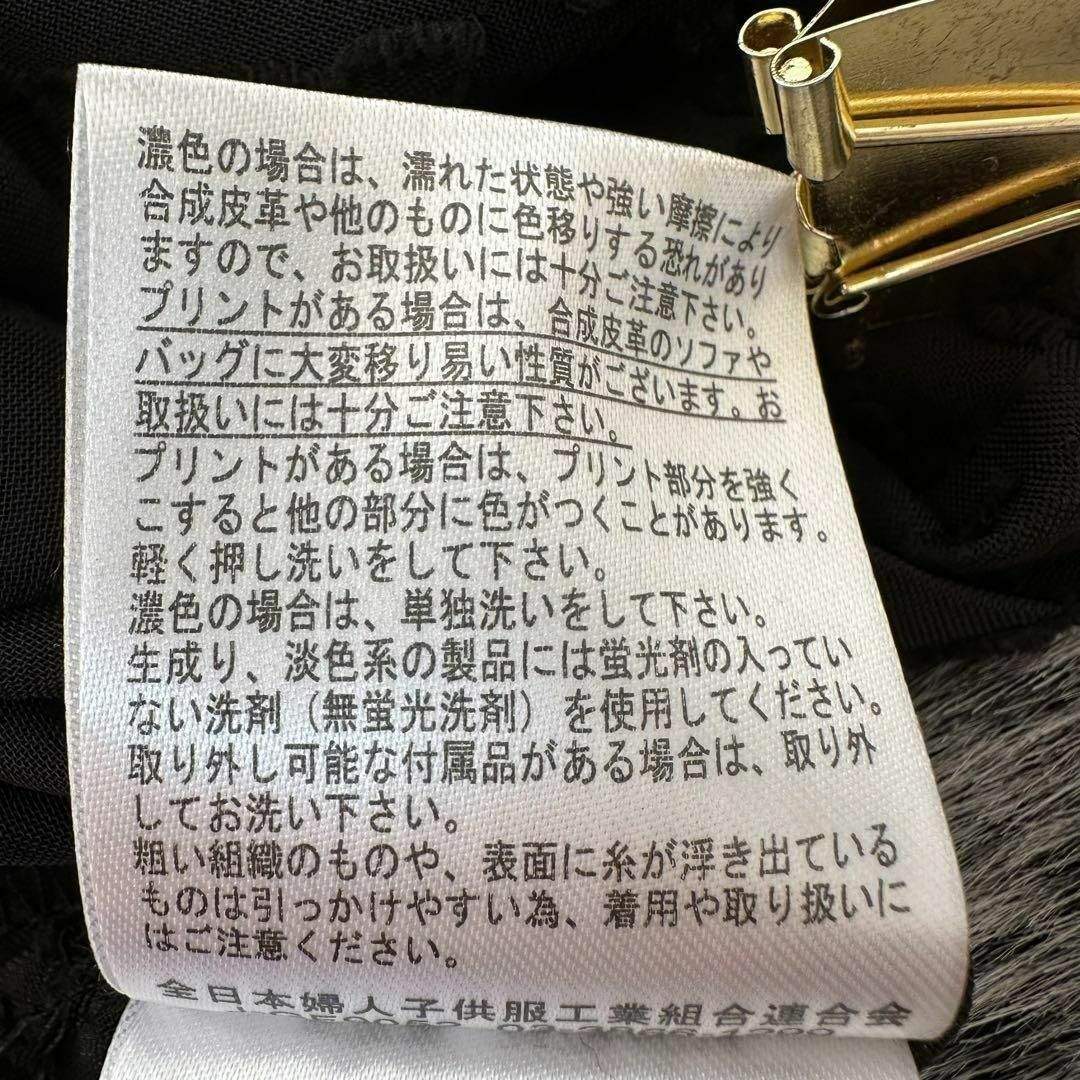 濃色の場合は、濡れた状態や強い摩擦により
合成皮革や他のものに色移りする恐れがあり
ますので、お取扱いには十分ご注意下さい。
プリントがある場合は、合成皮革のソファや
バッグに大変移り易い性質がございます。お
取扱いには十分ご注意下さい。
プリントがある場合は、プリント部分を強く
こすると他の部分に色がつくことがあります。
軽く押し洗いをして下さい。
濃色の場合は、単独洗いをして下さい。
生成り、淡色系の製品には蛍光剤の入ってい
ない洗剤（無蛍光洗剤）を使用してください。
取り外し可能な付属品がある場合は、取り外
してお洗い下さい。
粗い組織のものや、表面に糸が浮き出ている
ものは引っかけやすい為、着用や取り扱いに
はご注意ください。
全日本婦人子供服工業組合連合会